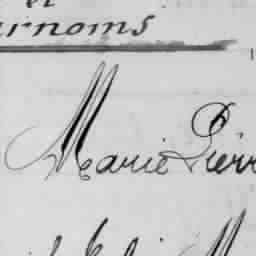 et
urnoms
Marie Pierr